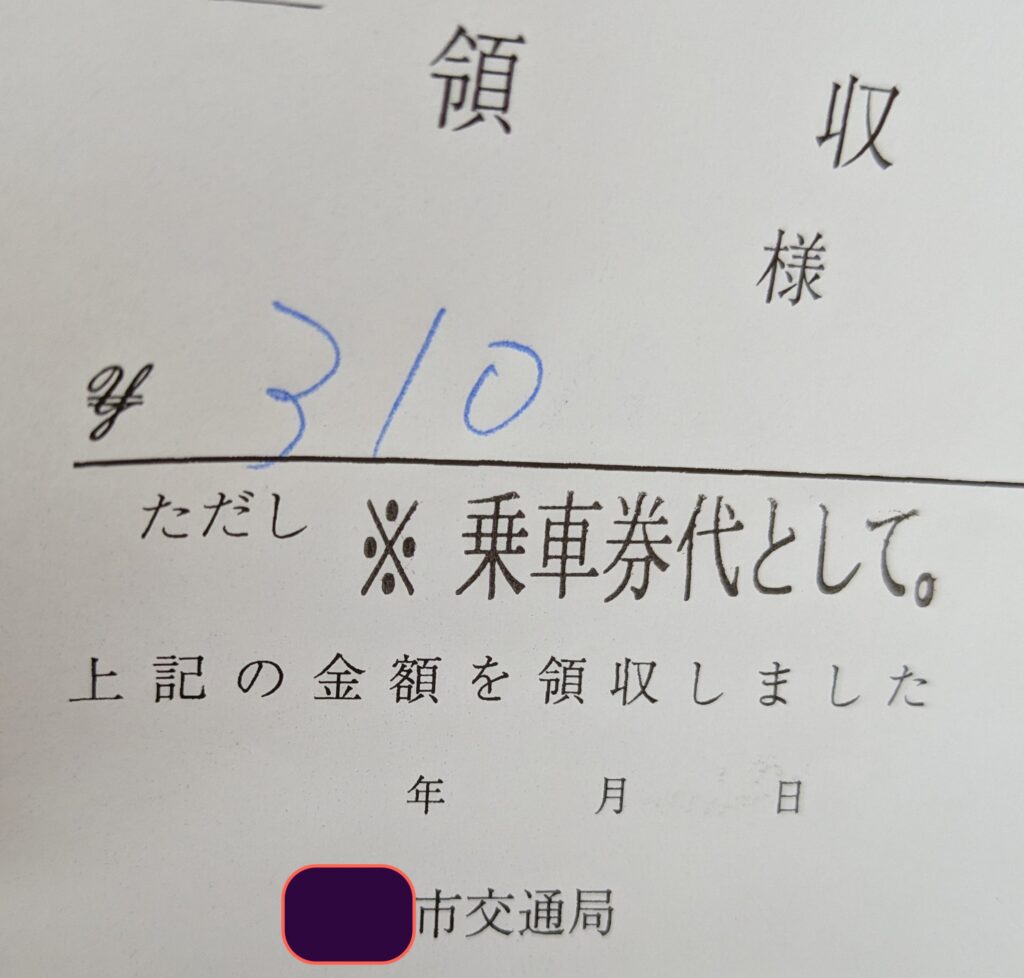 領収
様
¥ 310
ただし ※ 乗車券代として。
上記の金額を領収しました
年 月 日
市交通局